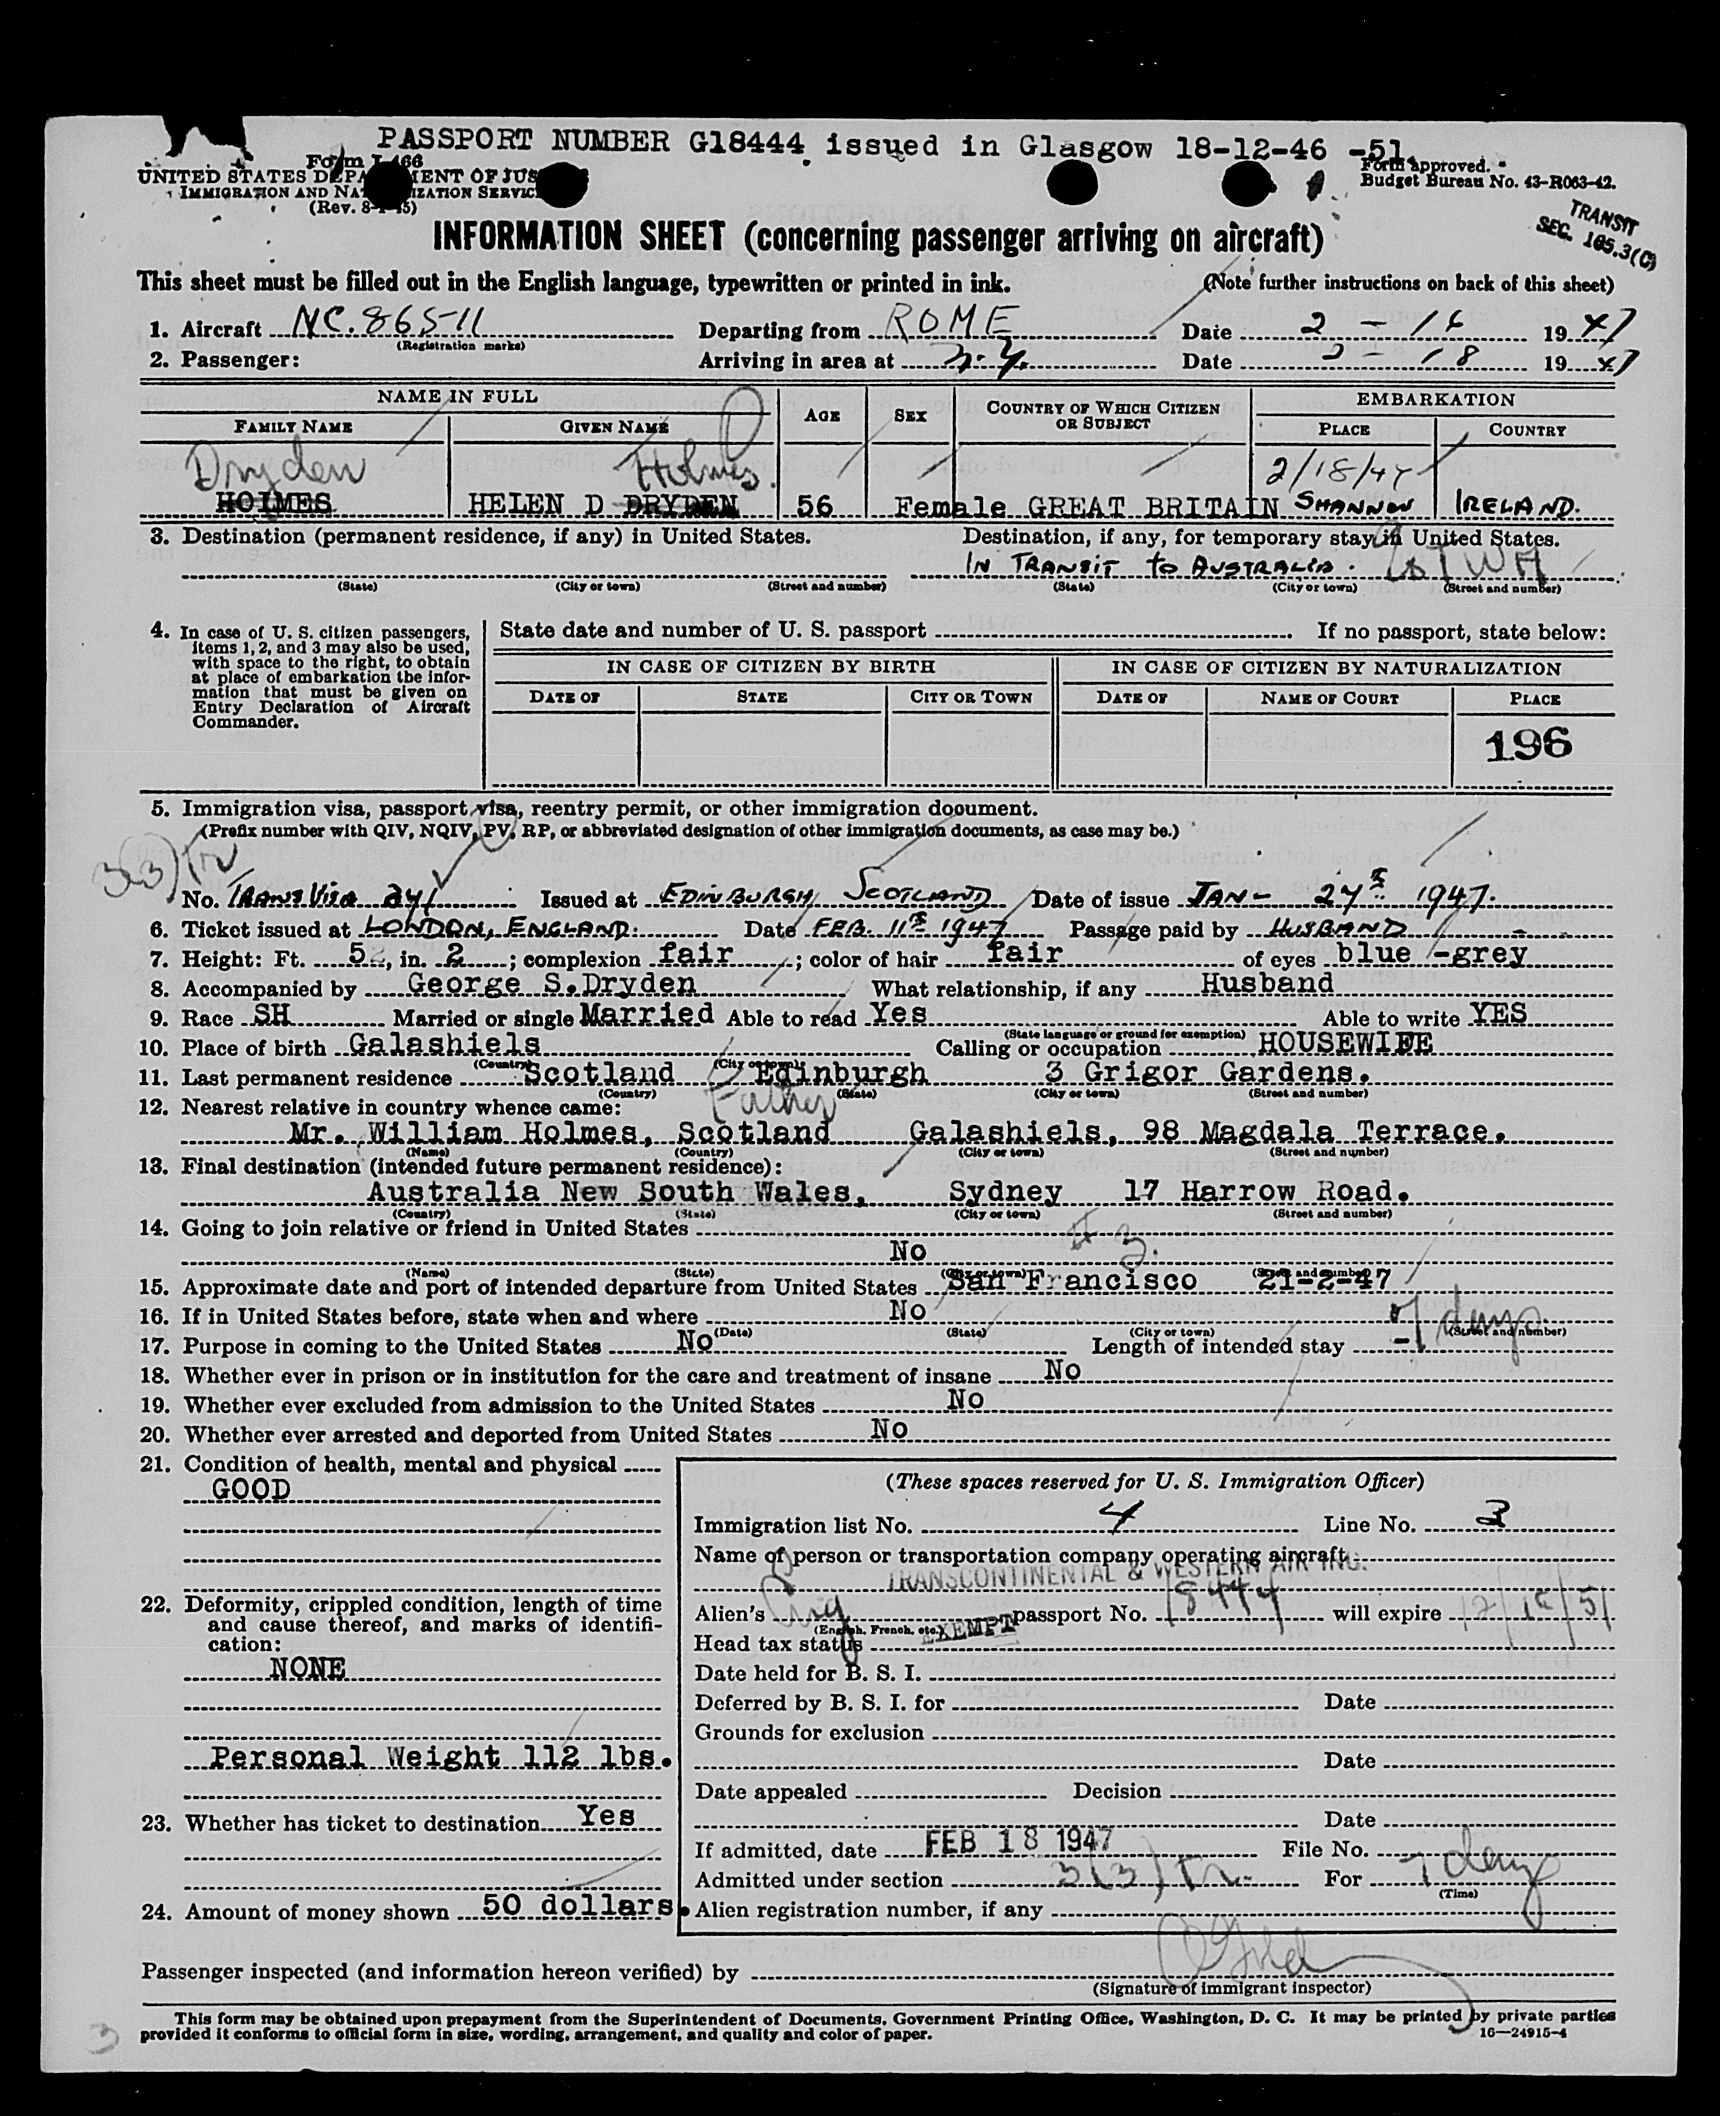 PASSPORT NUMBER G18444 issued in Glasgow 18-12-46 -51.
Form I-466
UNITED STATES DEPARTMENT OF JUS
IMMIGRATION AND NATURALIZATION SERVICE
(Rev. 8-1-45)
Form approved.
Budget Bureau No. 43-R063-42.
TRANSIT
SEC. 165.3(C)
INFORMATION SHEET (concerning passenger arriving on aircraft)
This sheet must be filled out in the English language, typewritten or printed in ink. (Note further instructions on back of this sheet)
1. Aircraft NC. 86511 Departing from ROME Date 2 - 16 1947
(Registration marks)
2. Passenger: Arriving in area at N.Y. Date 2 - 18 1947
NAME IN FULL AGE SEX COUNTRY OF WHICH CITIZEN OR SUBJECT EMBARKATION
FAMILY NAME GIVEN NAME PLACE COUNTRY
Dryden Holmes. 2/18/47
HOLMES HELEN D DRYDEN 56 Female GREAT BRITAIN SHANNON IRELAND.
3. Destination (permanent residence, if any) in United States. Destination, if any, for temporary stay in United States.
IN TRANSIT to AUSTRALIA. TWA
(State) (City or town) (Street and number) (State) (City or town) (Street and number)
4. In case of U. S. citizen passengers, items 1, 2, and 3 may also be used, with space to the right, to obtain at place of embarkation the information that must be given on Entry Declaration of Aircraft Commander.
State date and number of U. S. passport If no passport, state below:
IN CASE OF CITIZEN BY BIRTH IN CASE OF CITIZEN BY NATURALIZATION
DATE OF STATE CITY OR TOWN DATE OF NAME OF COURT PLACE
196
5. Immigration visa, passport visa, reentry permit, or other immigration document.
(Prefix number with QIV, NQIV, PV, RP, or abbreviated designation of other immigration documents, as case may be.)
3(3) Tr
No. TRANS VISA 241 Issued at EDINBURGH SCOTLAND Date of issue JAN - 27th 1947.
6. Ticket issued at LONDON, ENGLAND. Date FEB. 11th 1947 Passage paid by HUSBAND
7. Height: Ft. 5, in. 2; complexion fair; color of hair fair of eyes blue -grey
8. Accompanied by George S.Dryden What relationship, if any Husband
9. Race SH Married or single Married Able to read Yes Able to write YES
(State language or ground for exemption)
10. Place of birth Galashiels Calling or occupation HOUSEWIFE
(Country) (City or town)
11. Last permanent residence Scotland Edinburgh 3 Grigor Gardens.
(Country) (State) (City or town) (Street and number)
12. Nearest relative in country whence came: Father
Mr. William Holmes, Scotland Galashiels, 98 Magdala Terrace.
(Name) (Country) (City or town) (Street and number)
13. Final destination (intended future permanent residence):
Australia New South Wales, Sydney 17 Harrow Road.
(Country) (State) (City or town) (Street and number)
14. Going to join relative or friend in United States
No
(Name) (State) (City or town) (Street and number)
15. Approximate date and port of intended departure from United States San Francisco 21-2-47
16. If in United States before, state when and where No
(Date) (State) (City or town) (Street and number)
17. Purpose in coming to the United States No Length of intended stay 7 days.
18. Whether ever in prison or in institution for the care and treatment of insane No
19. Whether ever excluded from admission to the United States No
20. Whether ever arrested and deported from United States No
21. Condition of health, mental and physical
GOOD
22. Deformity, crippled condition, length of time and cause thereof, and marks of identification:
NONE
Personal Weight 112 lbs.
23. Whether has ticket to destination Yes
24. Amount of money shown 50 dollars.
(These spaces reserved for U. S. Immigration Officer)
Immigration list No. 4 Line No. 3
Name of person or transportation company operating aircraft
TRANSCONTINENTAL & WESTERN AIR INC.
Alien's passport No. 18444 will expire 12/18/51
(English, French, etc.)
Head tax status EXEMPT
Date held for B. S. I.
Deferred by B. S. I. for Date
Grounds for exclusion
Date
Date appealed Decision
Date
If admitted, date FEB 18 1947 File No.
Admitted under section 3(3) Tr. For 7 days
(Time)
Alien registration number, if any
Passenger inspected (and information hereon verified) by
(Signature of immigrant inspector)
This form may be obtained upon prepayment from the Superintendent of Documents, Government Printing Office, Washington, D. C. It may be printed by private parties
provided it conforms to official form in size, wording, arrangement, and quality and color of paper. 16—24915-4
3